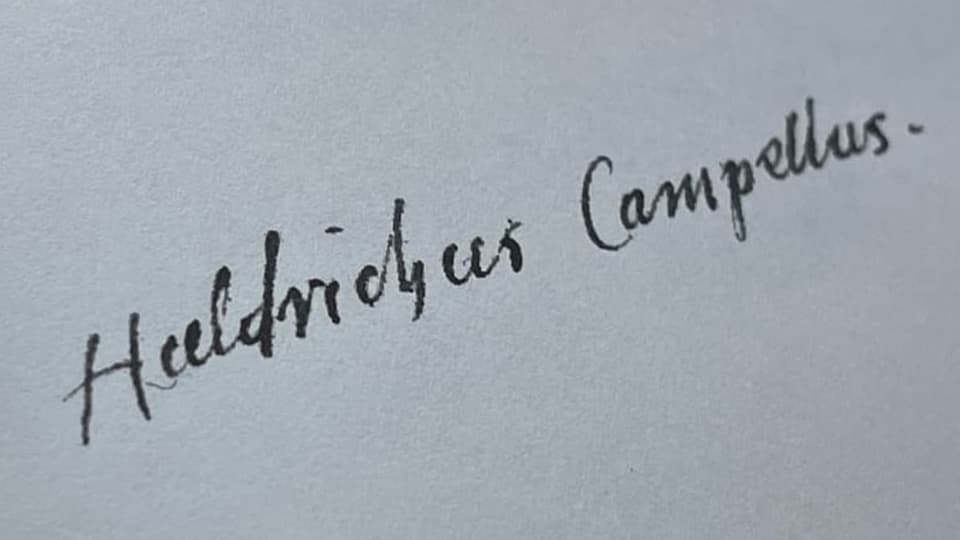 Huldrichus Campellus.